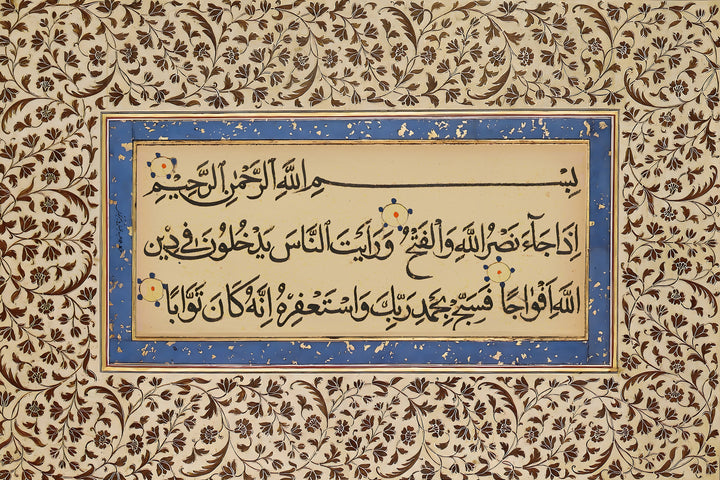 بِسْمِ اللَّهِ الرَّحْمَٰنِ الرَّحِيمِ
إِذَا جَاءَ نَصْرُ اللَّهِ وَالْفَتْحُ وَرَأَيْتَ النَّاسَ يَدْخُلُونَ فِي دِينِ
اللَّهِ أَفْوَاجًا فَسَبِّحْ بِحَمْدِ رَبِّكَ وَاسْتَغْفِرْهُ إِنَّهُ كَانَ تَوَّابًا